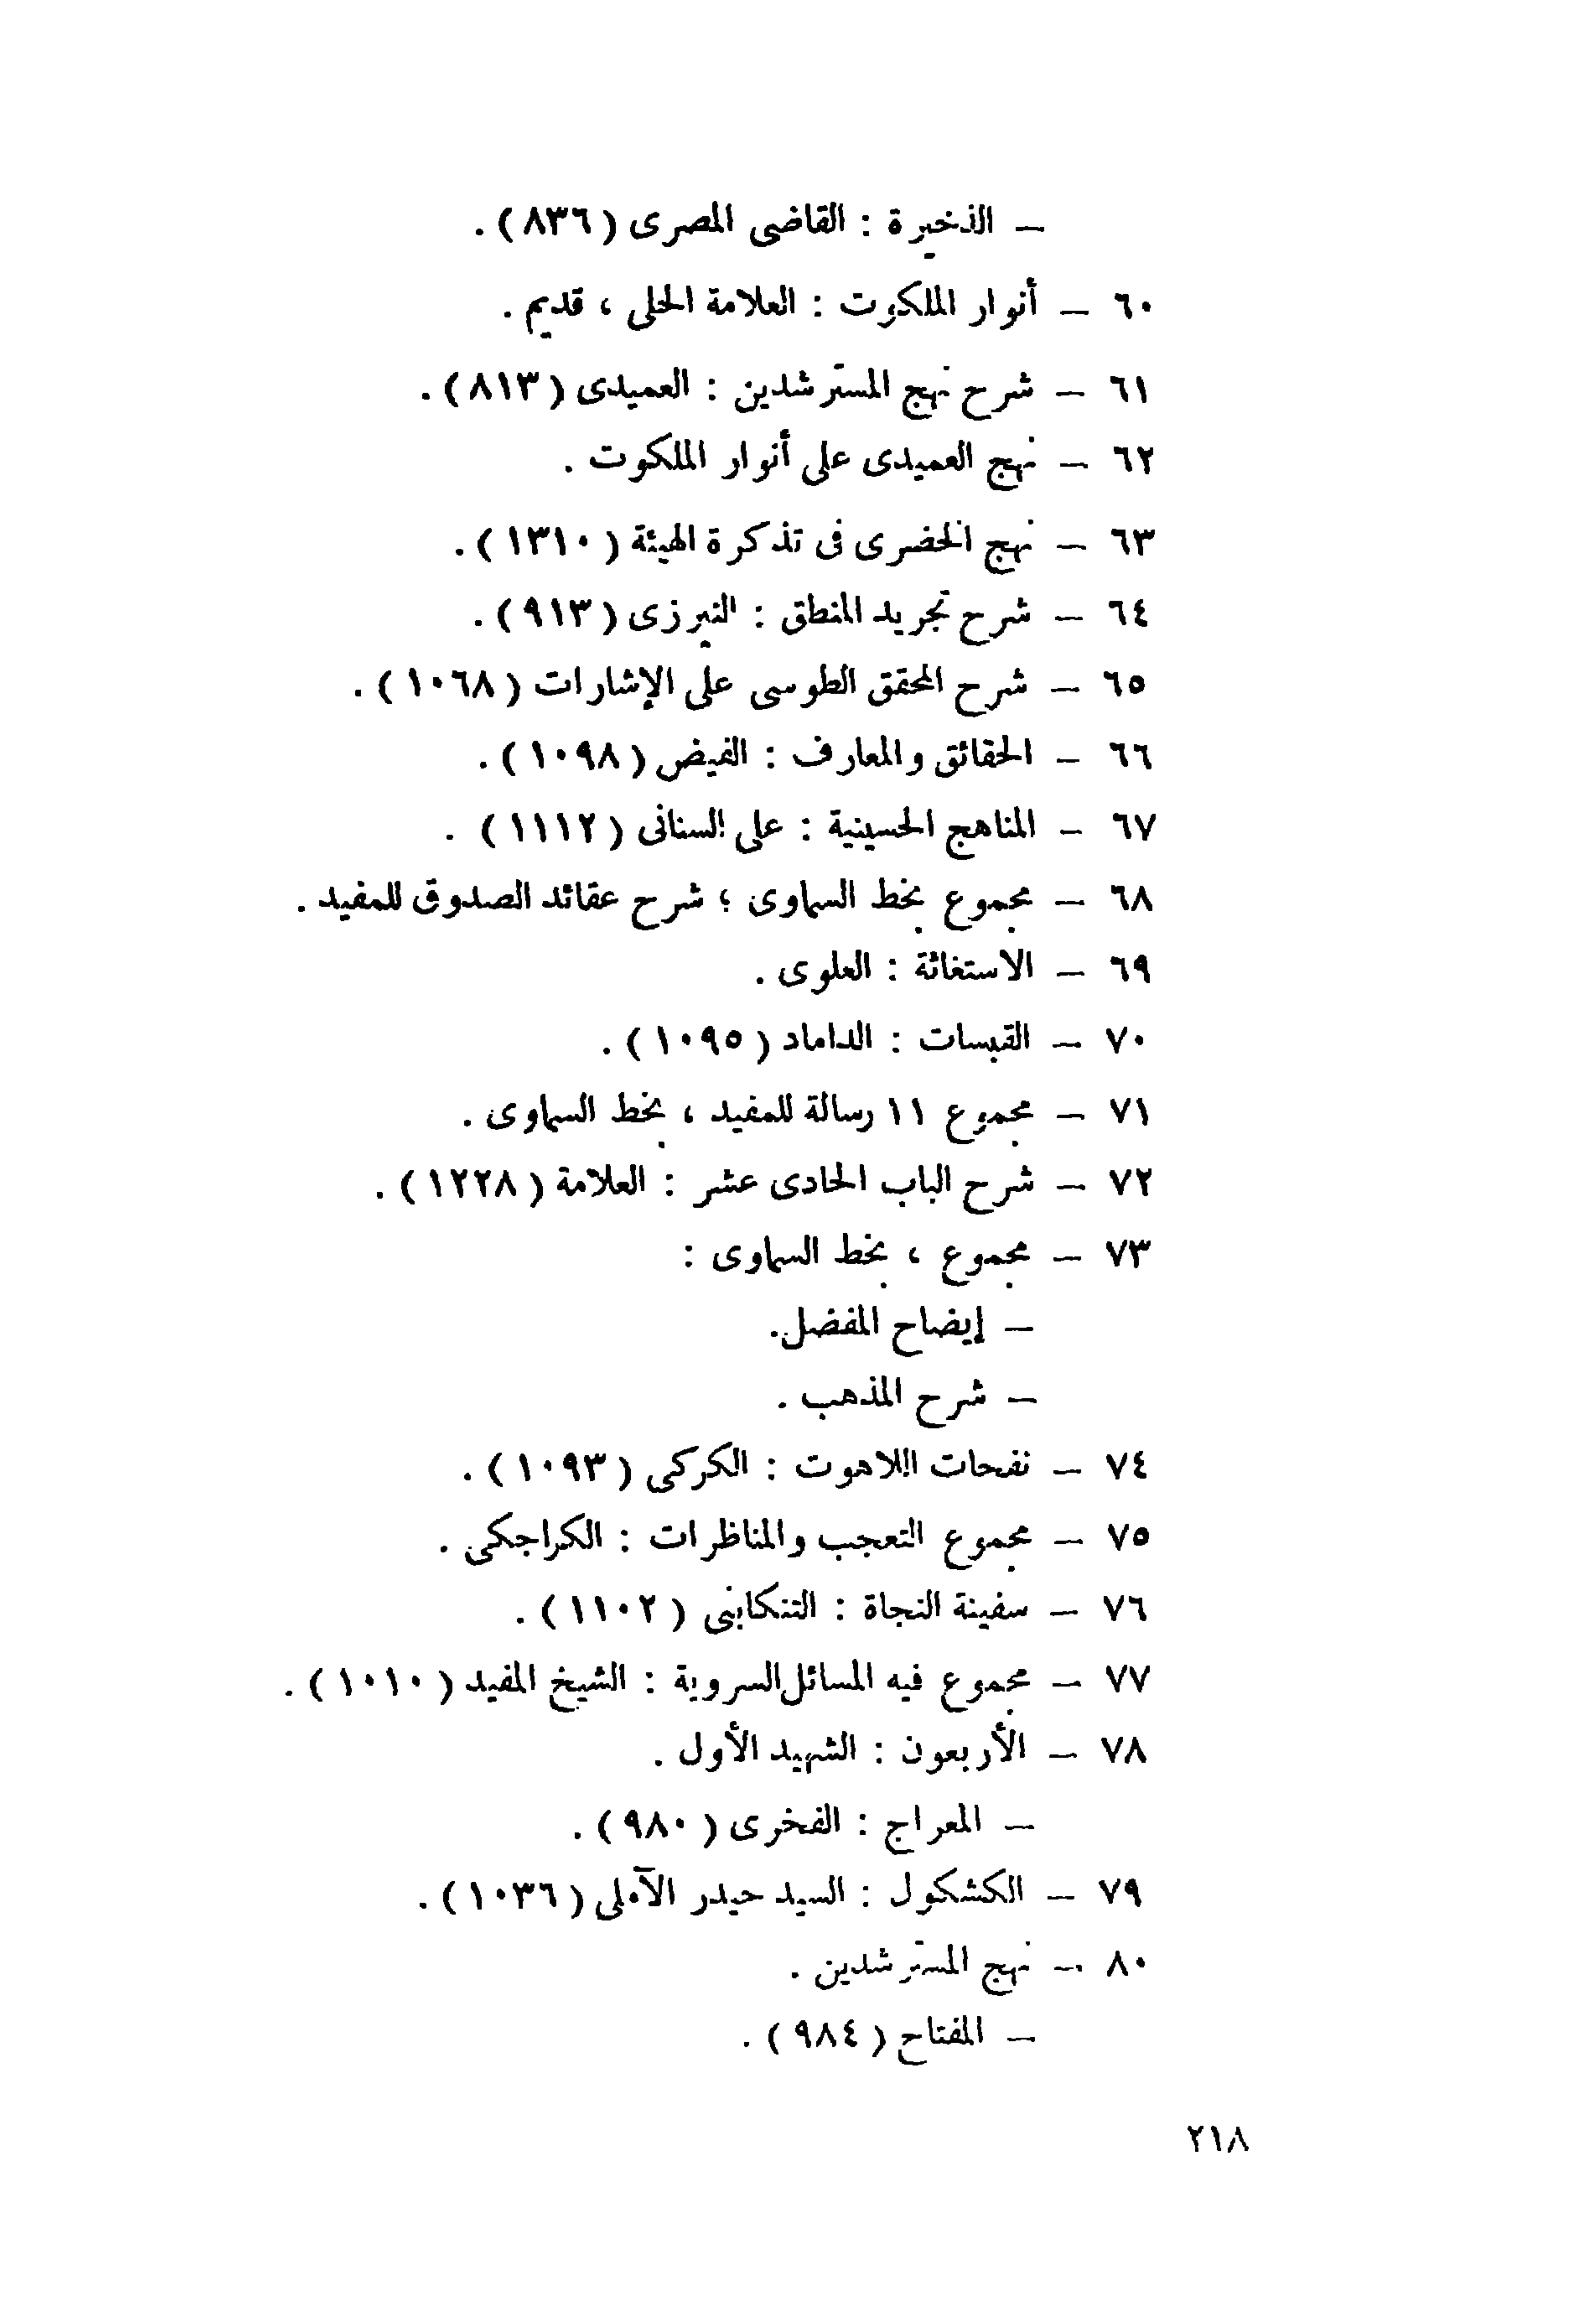 – الذخيرة : القاضى المصرى ( ٨٣٦ ) .
٦٠ – أنوار الملكوت : العلامة الحلى ، قديم .
٦١ – شرح نهج المسترشدين : العميدى ( ٨١٣ ) .
٦٢ – نهج العميدى على أنوار الملكوت .
٦٣ – نهج الخضرى فى تذكرة الهيئة ( ١٣١٠ ) .
٦٤ – شرح تجريد المنطق : النيرزى ( ٩١٣ ) .
٦٥ – شرح المحقق الطوسى على الإشارات ( ١٠٦٨ ) .
٦٦ – الحقائق والمعارف : الفيض ( ١٠٩٨ ) .
٦٧ – المناهج الحسينية : على السنانى ( ١١١٢ ) .
٦٨ – مجموع بخط السماوى ؛ شرح عقائد الصدوق للمفيد .
٦٩ – الاستغاثة : العلوى .
٧٠ – القبسات : الداماد ( ١٠٩٥ ) .
٧١ – مجموع ١١ رسالة للمفيد ، بخط السماوى .
٧٢ – شرح الباب الحادى عشر : العلامة ( ١٢٢٨ ) .
٧٣ – مجموع ، بخط السماوى :
– إيضاح المفضل.
– شرح المذهب .
٧٤ – نفحات اللاهوت : الكركى ( ١٠٩٣ ) .
٧٥ – مجموع التعجب والمناظرات : الكراجكى .
٧٦ – سفينة النجاة : التنكابنى ( ١١٠٢ ) .
٧٧ – مجموع فيه المسائل السروية : الشيخ المفيد ( ١٠١٠ ) .
٧٨ – الأربعون : الشهيد الأول .
– المعراج : الفخرى ( ٩٨٠ ) .
٧٩ – الكشكول : السيد حيدر الآملى ( ١٠٣٦ ) .
٨٠ – نهج المسترشدين .
– المفتاح ( ٩٨٤ ) .
٢١٨